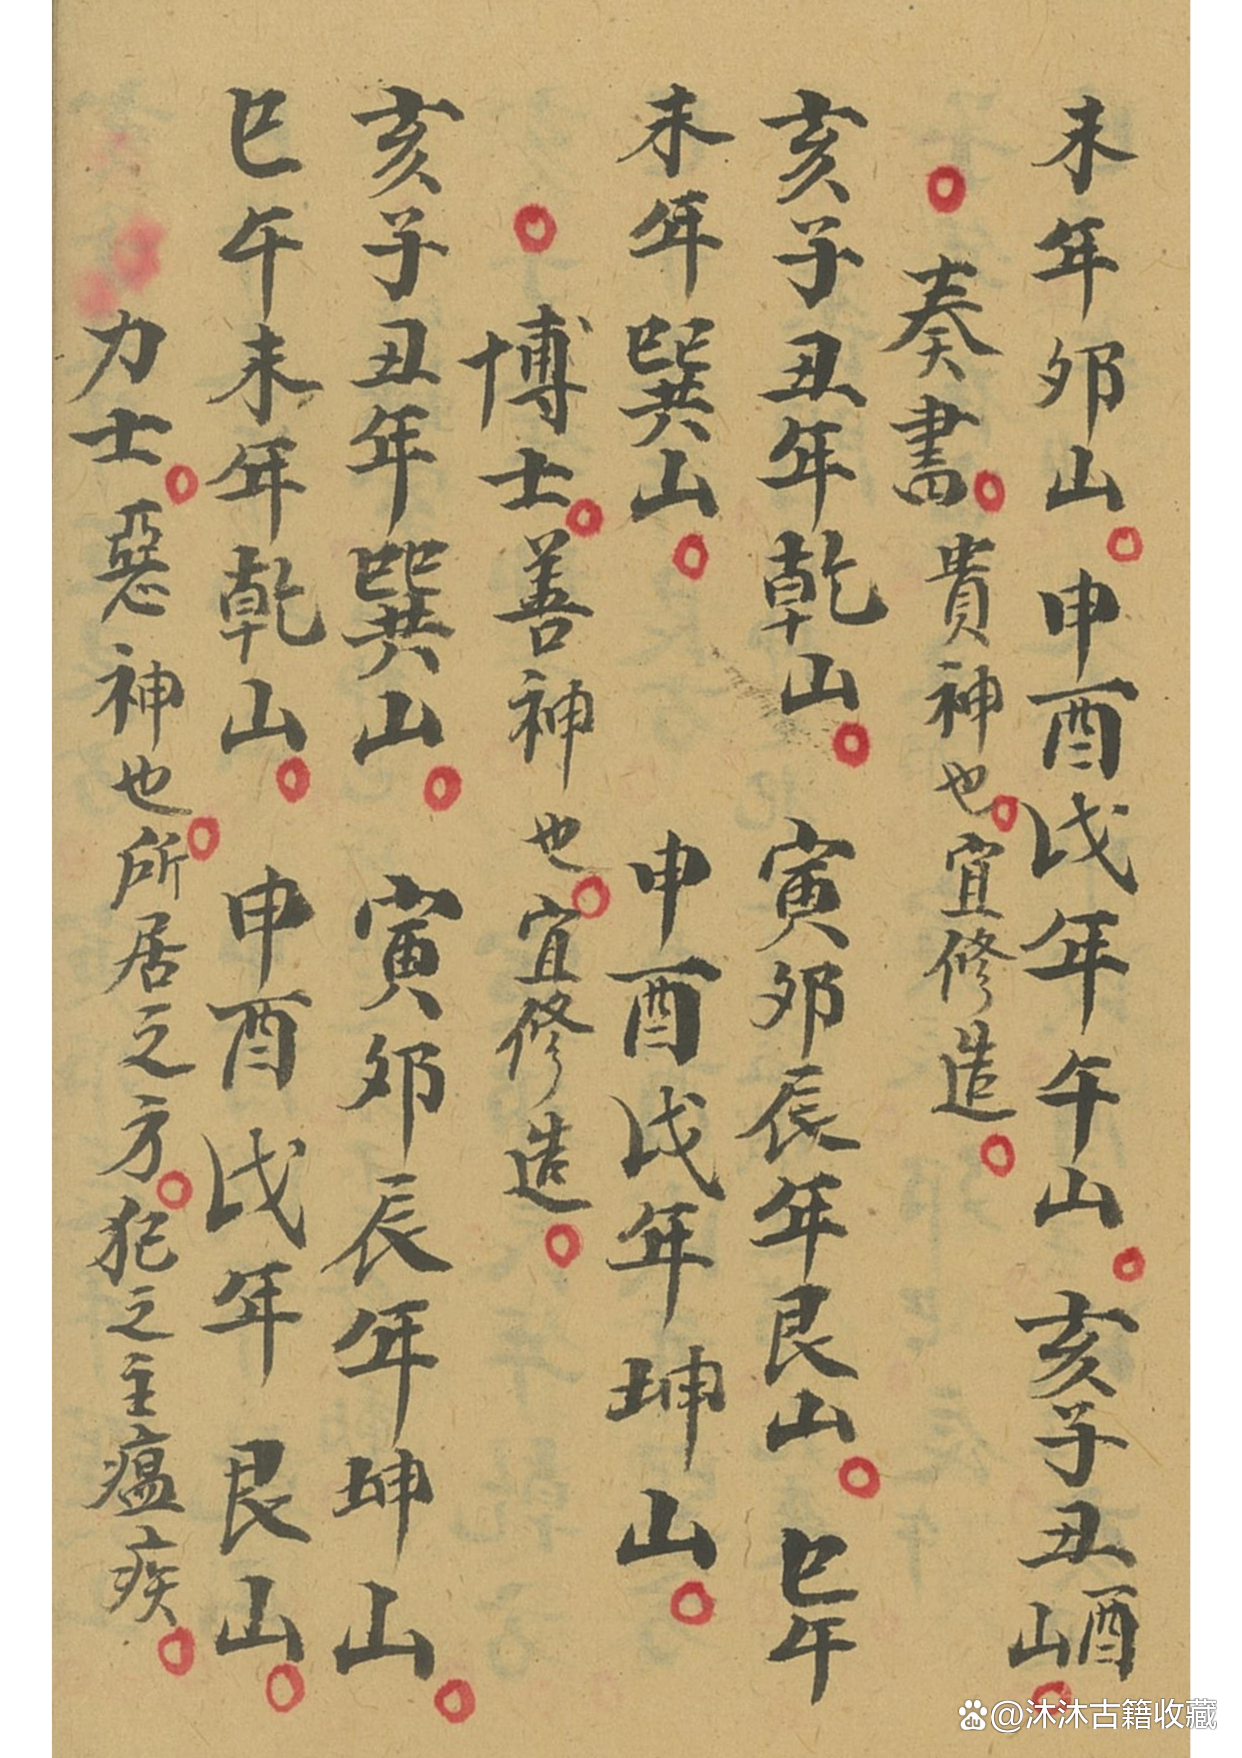 未年夘山。申酉戌年午山。亥子丑酉山。
。奏書。貴神也。宜修造。
亥子丑年乾山。寅夘辰年艮山。巳午
未年巽山。申酉戌年坤山。
。博士。善神也。宜修造。
亥子丑年巽山。寅夘辰年坤山。
巳午未年乾山。申酉戌年艮山。
力士。惡神也。所居之方。犯之主瘟疾。
@沐沐古籍收藏